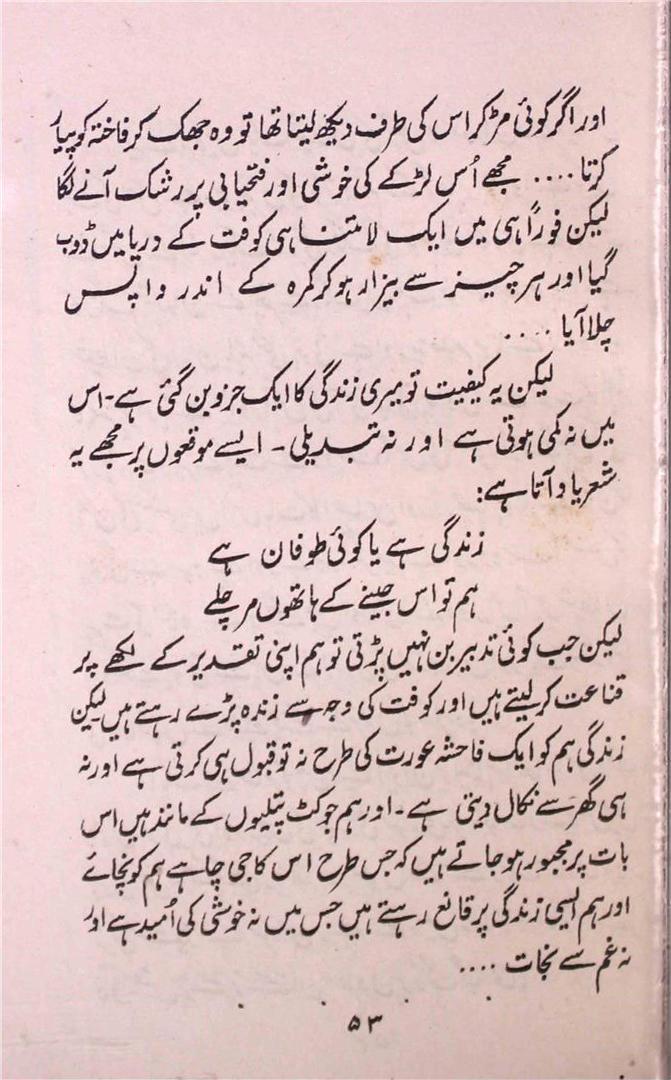 اور اگر کوئی مڑ کر اس کی طرف دیکھ لیتا تھا تو وہ جھک کر فاختہ کو پیار
کرتا .... مجھے اُس لڑکے کی خوشی اور فتحیابی پر رشک آنے لگا
لیکن فوراً ہی میں ایک لامتناہی کوفت کے دریا میں ڈوب
گیا اور ہر چیز سے بیزار ہو کر کمرہ کے اندر واپس
چلا آیا ....
لیکن یہ کیفیت تو میری زندگی کا ایک جزو بن گئی ہے۔ اس
میں نہ کمی ہوتی ہے اور نہ تبدیلی۔ ایسے موقعوں پر مجھے یہ
شعر یاد آتا ہے:
زندگی ہے یا کوئی طوفان ہے
ہم تو اس جینے کے ہاتھوں مر چلے
لیکن جب کوئی تدبیر بن نہیں پڑتی تو ہم اپنی تقدیر کے لکھے پر
قناعت کر لیتے ہیں اور کوفت کی وجہ سے زندہ پڑے رہتے ہیں لیکن
زندگی ہم کو ایک فاحشہ عورت کی طرح نہ تو قبول ہی کرتی ہے اور نہ
ہی گھر سے نکال دیتی ہے۔ اور ہم جو کٹ پتلیوں کے مانند ہیں اس
بات پر مجبور ہو جاتے ہیں کہ جس طرح اس کا جی چاہے ہم کو نچائے
اور ہم ایسی زندگی پر قانع رہتے ہیں جس میں نہ خوشی کی اُمید ہے اور
نہ غم سے نجات ....
۵۳